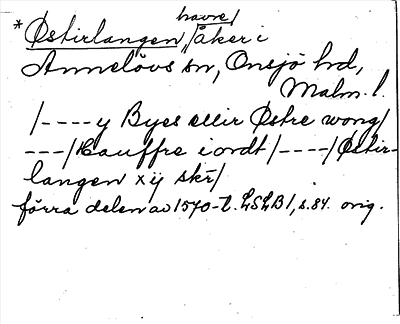 havre/
* Østirlangen, /åker i
Annelövs sn, Onsjö hd,
Malm. l.
/---- y Byes ellir Østre wong/
---/Hauffre iordt/----/Østir-
langen x ij skr/
förra delen av 1570-t. LSLB 1, s. 84. orig.